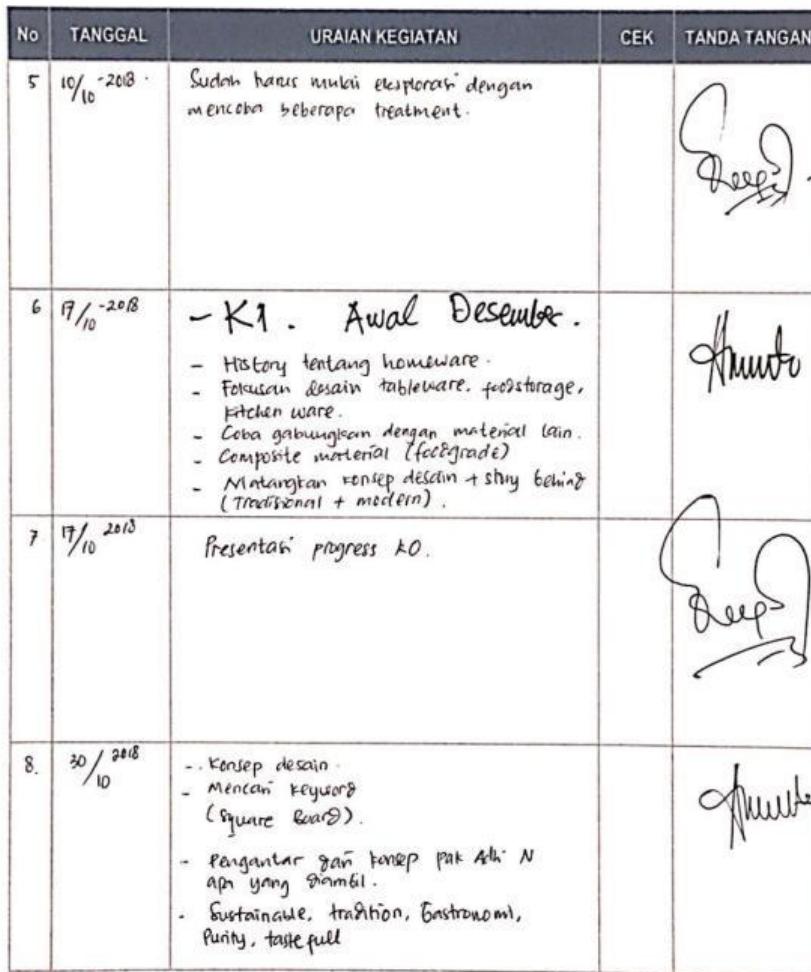 No TANGGAL URAIAN KEGIATAN CEK TANDA TANGAN
5 10/10-2018. Sudah harus mulai eksplorasi dengan
mencoba beberapa treatment.
6 17/10-2018 - K1. Awal Desember.
- History tentang homeware.
- Fokusan desain tableware, foodstorage,
kitchen ware.
- Coba gabungkan dengan material lain.
- Composite material (foodgrade)
- Matangkan konsep desain + story behind
(Tradisional + modern).
7 17/10 2018 Presentasi progress K0.
8. 30/10 2018 - Konsep desain.
- Mencari keyword
(Square Board).
- Pengantar dari konsep pak Adhi N
apa yang diambil.
- Sustainable, tradition, Gastronomi,
Purity, tastefull